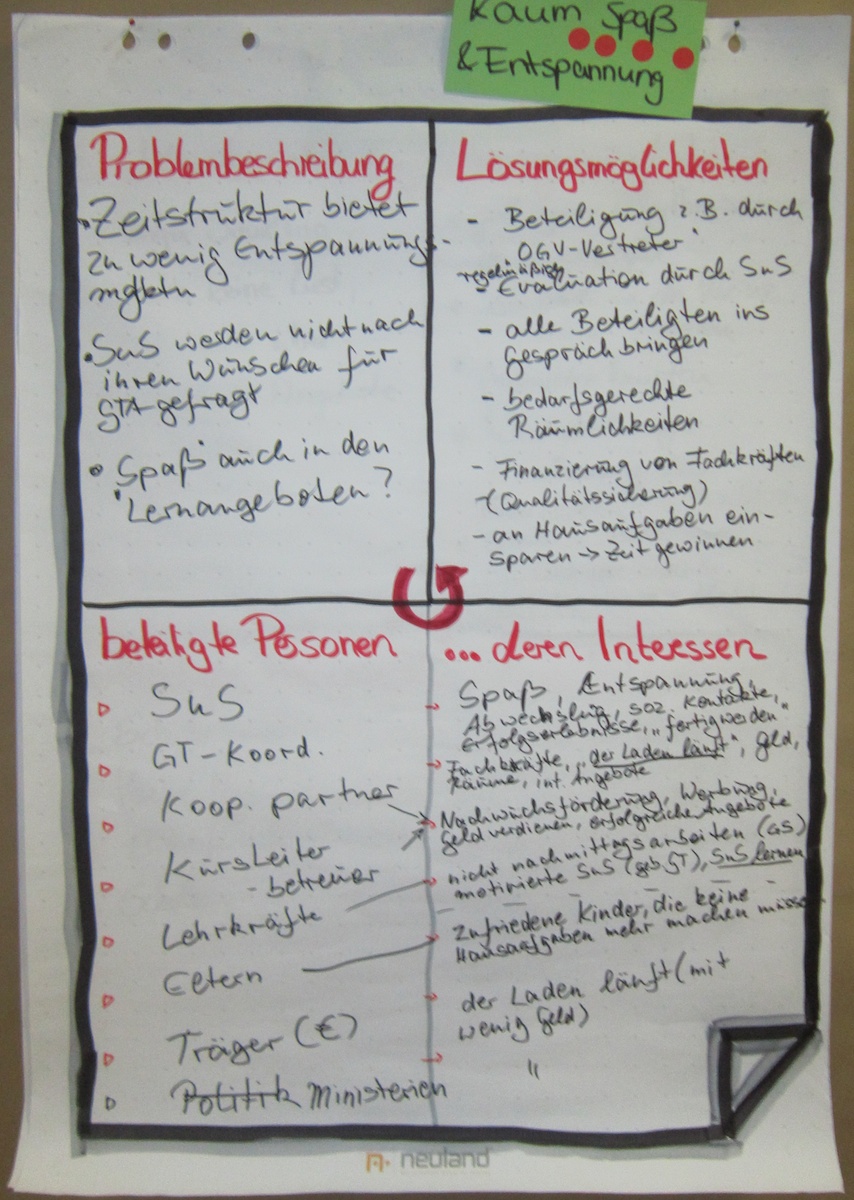 Kaum Spaß
& Entspannung
Problembeschreibung
• Zeitstruktur bietet
zu wenig Entspannungs-
• SuS werden nicht nach
ihren Wünschen für
GTA gefragt
• "Spaß" auch in den
Lernangeboten?
Lösungsmöglichkeiten
- Beteiligung z.B. durch
OGV-Vertreter
regelmäßige
- Evaluation durch SuS
- alle Beteiligten ins
Gespräch bringen
- bedarfsgerechte
Räumlichkeiten
- Finanzierung von Fachkräften
(Qualitätssicherung)
- an Hausaufgaben ein-
sparen → Zeit gewinnen
beteiligte Personen
SuS
GT-Koord.
Koop. partner
Kursleiter
- betreuer
Lehrkräfte
Eltern
Träger (€)
Politik Ministerien
... deren Interessen
Spaß, Entspannung,
Abwechslung, soz. Kontakte,
Erfolgserlebnisse, „fertig werden"
Fachkräfte, „der Laden läuft", Geld,
Räume, int. Angebote
Nachwuchsförderung, Werbung,
Geld verdienen, erfolgreiche Angebote
nicht nachmittags arbeiten (GS)
motivierte SuS (geb. GT), SuS lernen
zufriedene Kinder, die keine
Hausaufgaben mehr machen müssen
der Laden läuft (mit
wenig Geld)
"
neuland